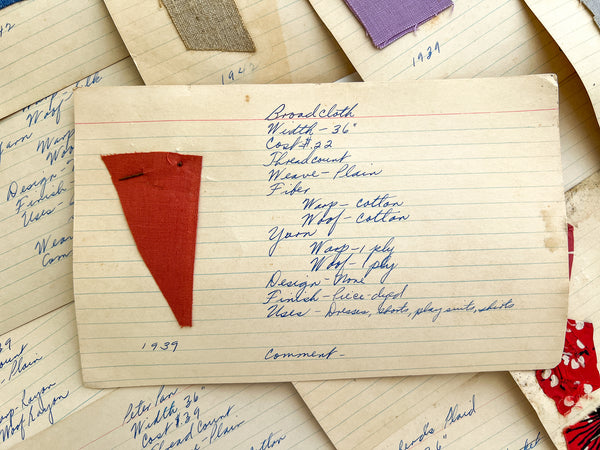 1942
1942
1939
Broadcloth
Width - 36"
Cost $.22
Threadcount
Weave - Plain
Fiber
Warp - cotton
Woof - cotton
Yarn
Warp - 1 ply
Woof - 1 ply
Design - None
Finish - Piece-dyed
Uses - Dresses, shorts, play suits, shirts
Comment -
1939
Warp
Yarn
Warp
Woof
Design -
Finish -
Uses -
Weave
Com
39
ount
- Plain
Warp - Rayon
Woof Rayon
Peter Pan
Width 36"
Cost $.39
Thread Count
- Plain
Cotton
Plaid
6"